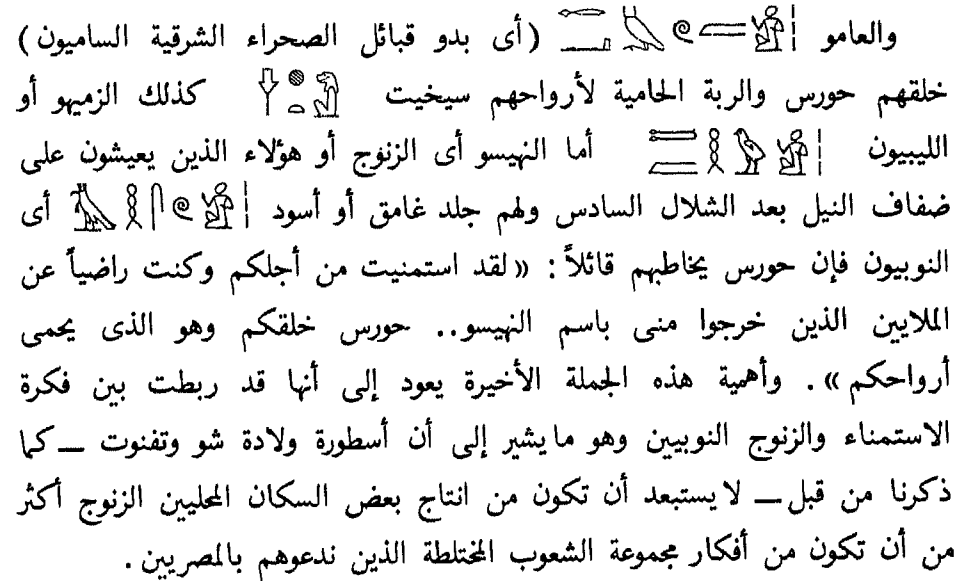 والعامو (أى بدو قبائل الصحراء الشرقية الساميون)
خلقهم حورس والربة الحامية لأرواحهم سيخيت كذلك الزميهو أو
الليبيون أما النهيسو أى الزنوج أو هؤلاء الذين يعيشون على
ضفاف النيل بعد الشلال السادس ولهم جلد غامق أو أسود أى
النوبيون فإن حورس يخاطبهم قائلاً : « لقد استمنيت من أجلكم وكنت راضياً عن
الملايين الذين خرجوا منى باسم النهيسو.. حورس خلقكم وهو الذى يحمى
أرواحكم » . وأهمية هذه الجملة الأخيرة يعود إلى أنها قد ربطت بين فكرة
الاستمناء والزنوج النوبيين وهو ما يشير إلى أن أسطورة ولادة شو وتفنوت ــ كما
ذكرنا من قبل ــ لا يستبعد أن تكون من انتاج بعض السكان المحليين الزنوج أكثر
من أن تكون من أفكار مجموعة الشعوب المختلطة الذين ندعوهم بالمصريين .